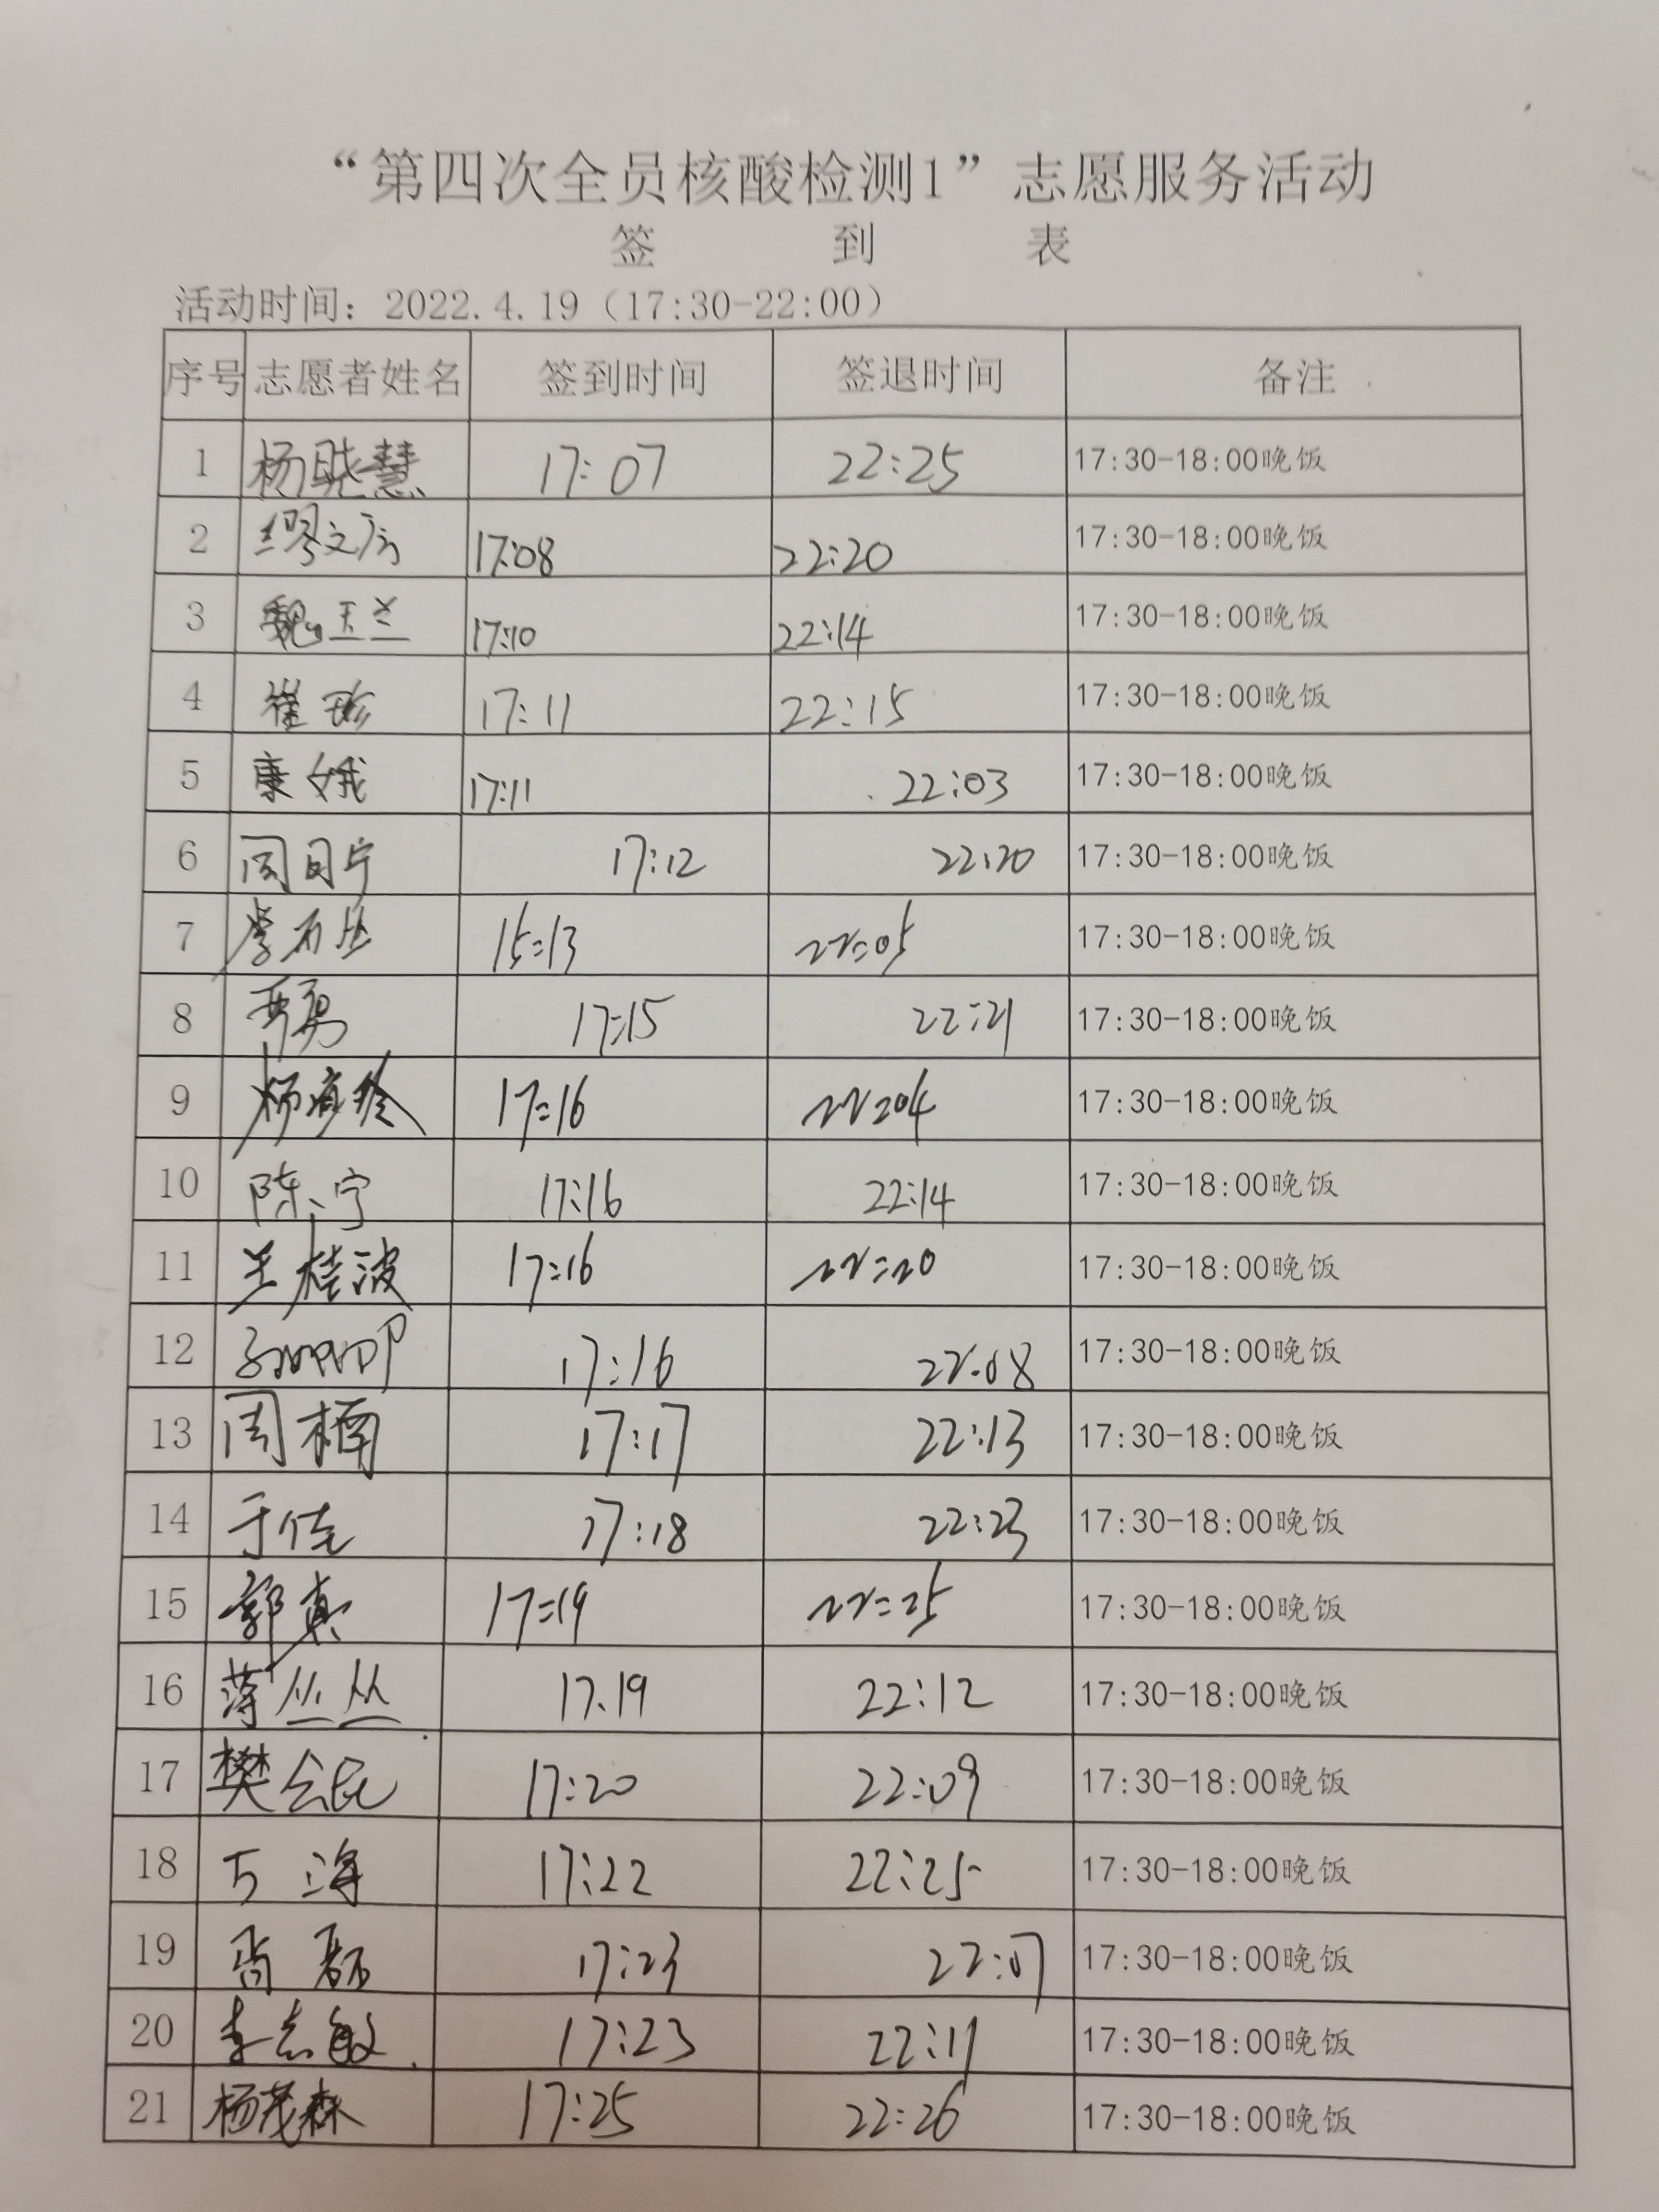 “第四次全员核酸检测1”志愿服务活动
签 到 表
活动时间：2022.4.19（17:30-22:00）
序号 志愿者姓名 签到时间 签退时间 备注
1 杨晓慧 17:07 22:25 17:30-18:00晚饭
2 缪文方 17:08 22:20 17:30-18:00晚饭
3 魏玉兰 17:10 22:14 17:30-18:00晚饭
4 崔珍 17:11 22:15 17:30-18:00晚饭
5 康娥 17:11 22:03 17:30-18:00晚饭
6 周日宁 17:12 22:20 17:30-18:00晚饭
7 15:13 22:05 17:30-18:00晚饭
8 17:15 22:21 17:30-18:00晚饭
9 17:16 22:04 17:30-18:00晚饭
10 陈宁 17:16 22:14 17:30-18:00晚饭
11 兰桂波 17:16 22:20 17:30-18:00晚饭
12 17:16 22:08 17:30-18:00晚饭
13 周楠 17:17 22:13 17:30-18:00晚饭
14 于佳 17:18 22:23 17:30-18:00晚饭
15 郭真 17:19 22:25 17:30-18:00晚饭
16 薄丛丛 17:19 22:12 17:30-18:00晚饭
17 樊会民 17:20 22:09 17:30-18:00晚饭
18 万海 17:22 22:25 17:30-18:00晚饭
19 尚磊 17:23 22:07 17:30-18:00晚饭
20 李志敏 17:23 22:11 17:30-18:00晚饭
21 杨茂森 17:25 22:26 17:30-18:00晚饭